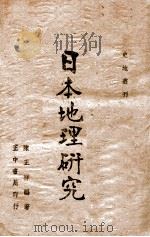 史地叢刊
日本地理研究
陳正祥編著
正中書局印行
mtoou.info